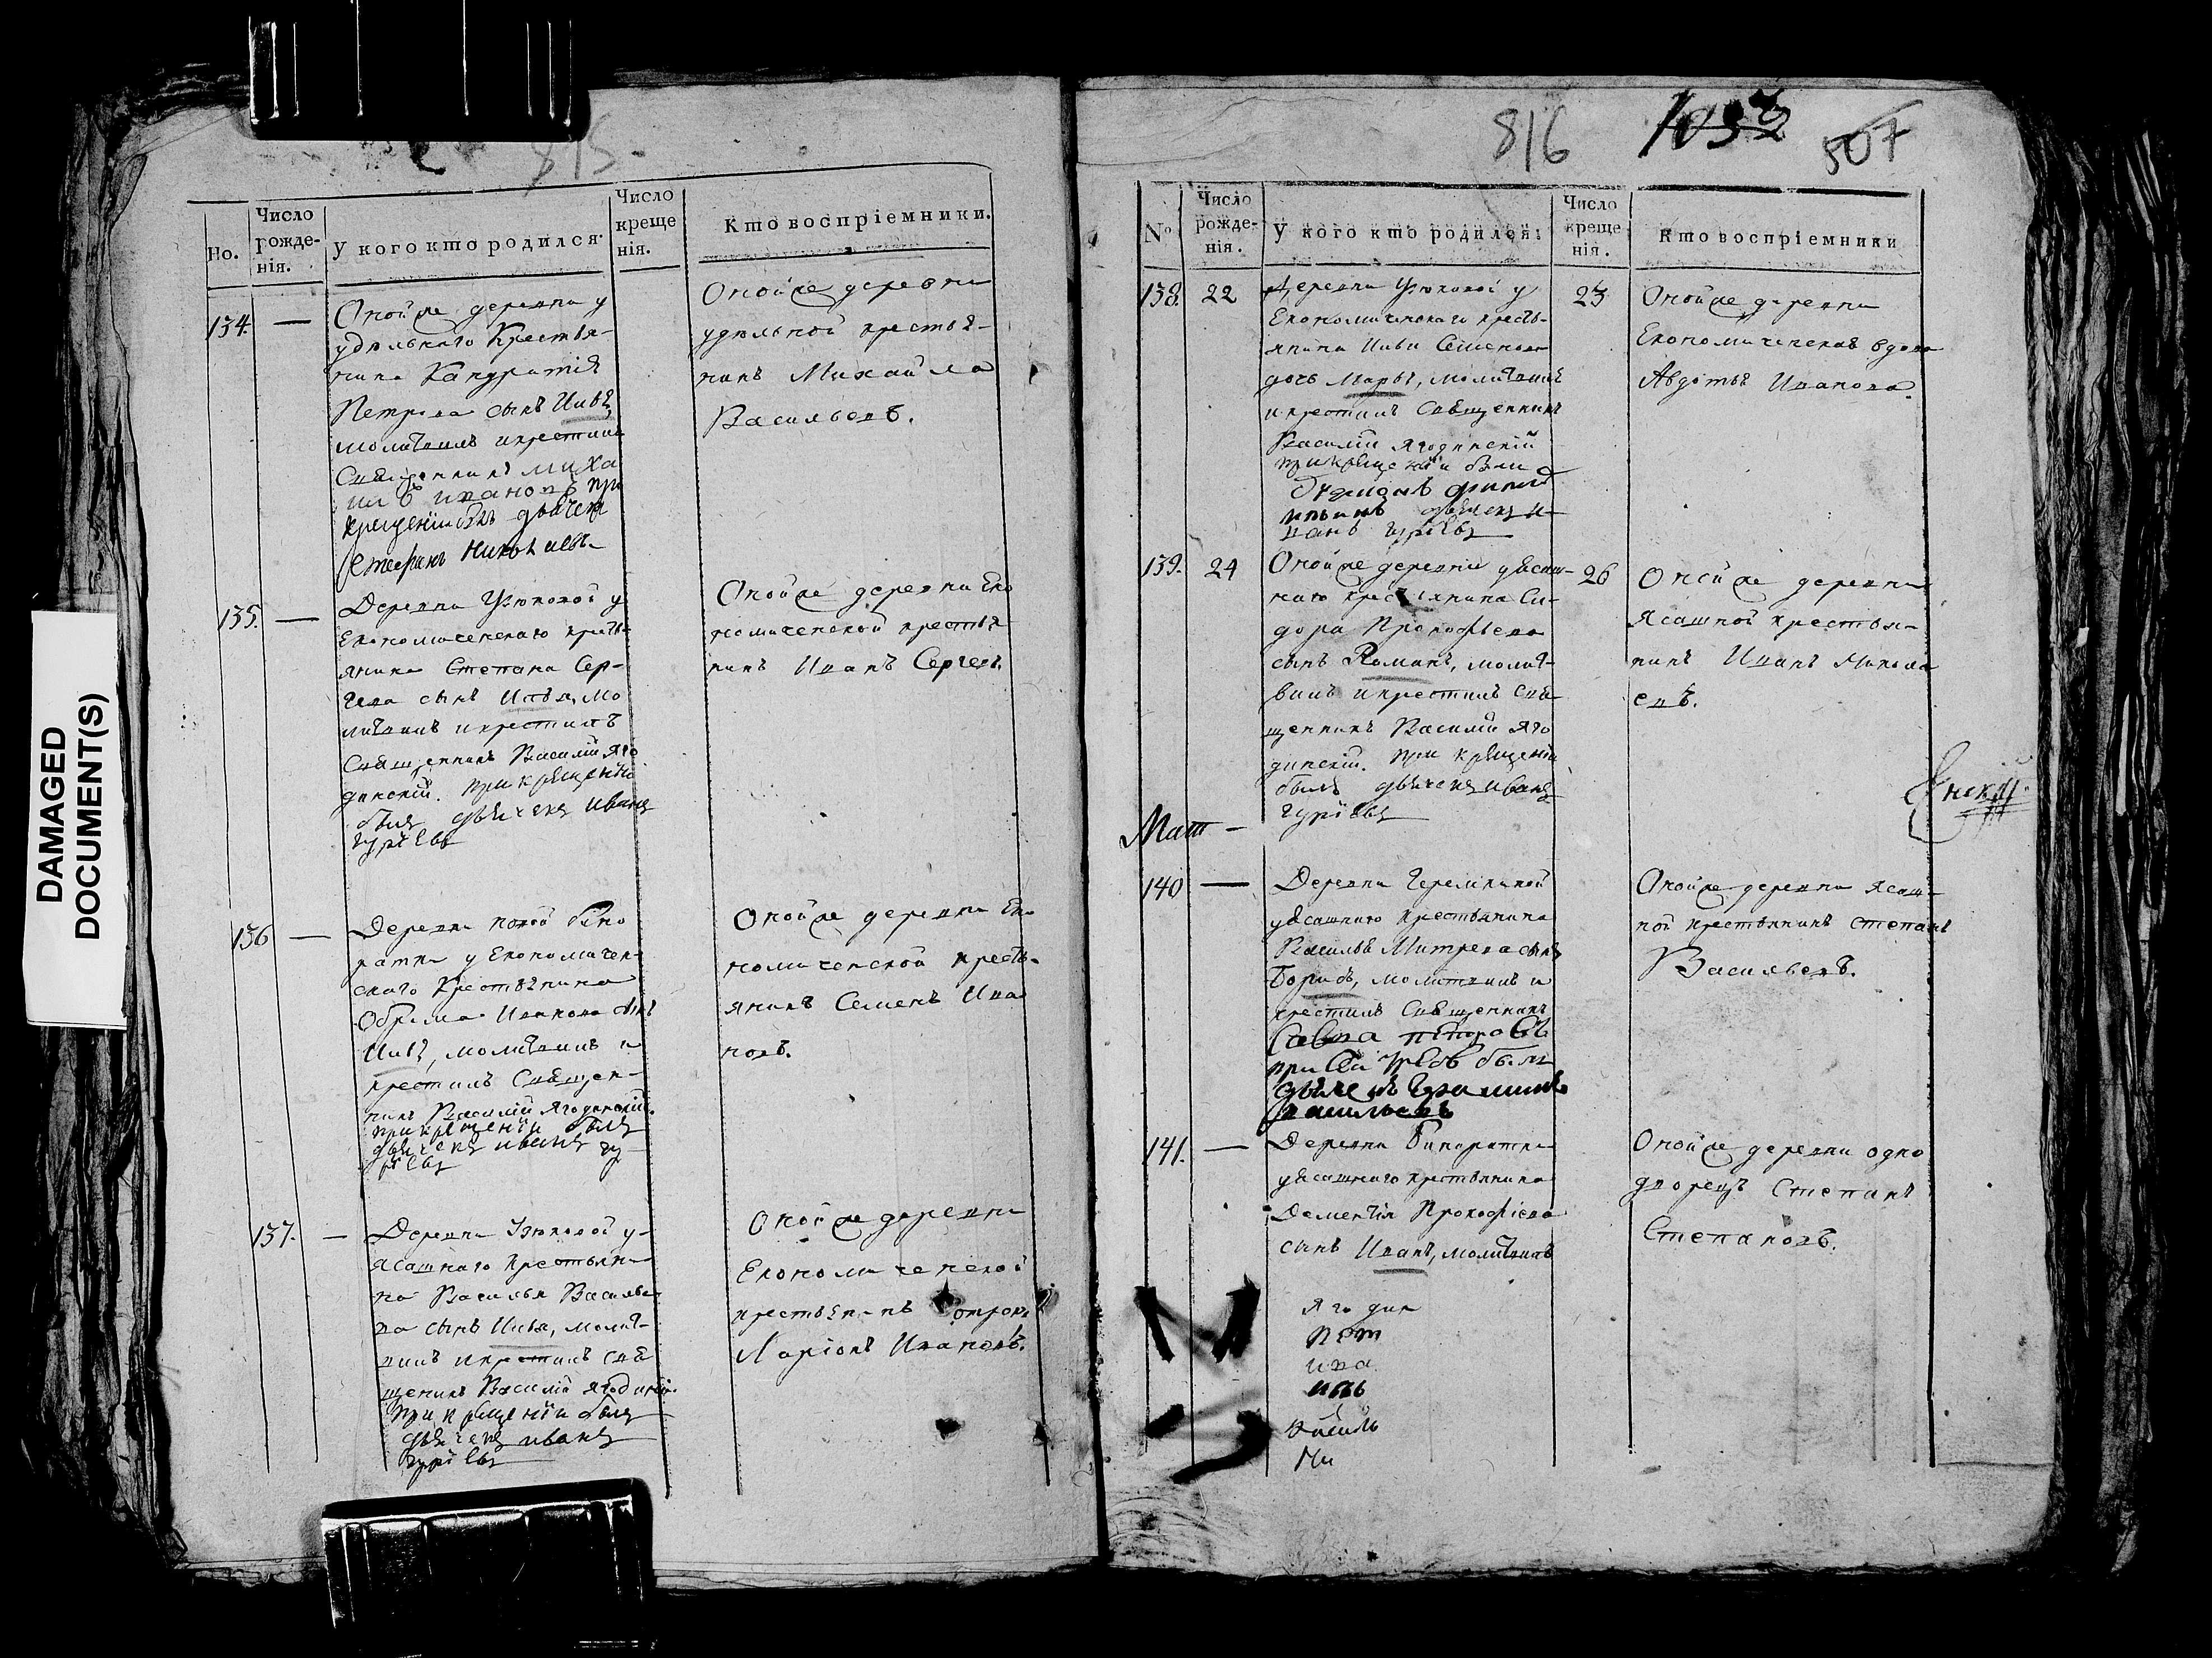 815
Но.
Число рожде-нія.
У кого кто родился.
Число креще нія.
Кто воспріемники.
134. —
Оной же деревни у
удѣльнаго Крестья-
нина Кандратія
Петрова сынъ Илья,
молитвилъ и крестилъ
Священникъ Миха
илъ Ивановъ при
крещеніи былъ дьячекъ
Стефанъ
Оной же деревни
удѣльной крестья-
нинъ Михайла
Васильевъ.
135. —
Деревни Узюковой у
Економическаго кресть-
янина Степана Сер-
геева сынъ Илья, мо
литвилъ и крестилъ
Священникъ Василій Яго
динскій. при крещеніи
былъ дьячекъ Иванъ
Гуріевъ
Оной же деревни Еко
номической крестья
нинъ Иванъ Сергеевъ
136 —
Деревни
у Економичес-
скаго Крестьянина
Обрама Иванова сынъ
Илья, молитвилъ и
крестилъ Священ-
никъ Василій Ягодинскій.
при крещеніи былъ
дьячекъ Иванъ Гу-
ріевъ
Оной же деревни Еко
номической кресть-
янинъ Семенъ Ива
новъ.
137. —
Деревни Узюковой у
ясашнаго крестьяни
на Василья Василье
ва сынъ Илья, молит-
вилъ и крестилъ свя
щеникъ Василій Ягодинскій.
при крещеніи былъ
дьячекъ Иванъ
Гуріевъ
Оной же деревни
Економической
крестьянинъ отрокъ
Ларіонъ Ивановъ.
816 1032 507
№
Число рожде-нія.
У кого кто родился.
Число креще нія.
Кто воспріемники
138. 22
Деревни Узюковой у
Економическаго кресть-
янина Ильи Семенова
дочь Марья, молитвилъ
и крестилъ Священникъ
Василій Ягодинскій
при крещеніи были
дьячекъ И-
ванъ Гуріевъ
23
Оной же деревни
Економическая вдова
Авдотья Иванова.
139. 24
Оной же деревни у ясаш-
наго крестьянина Си-
дора Прокофьева
сынъ Романъ, молит-
вилъ и крестилъ свя-
щенникъ Василій Яго
динскій. при крещеніи
былъ дьячекъ Иванъ
Гуріевъ
26
Оной же деревни
Ясашной крестья-
нинъ Иванъ Никола
евъ.
140 —
Деревни
у ясашнаго крестьянина
Василья Митрева сынъ
Борисъ, молитвилъ и
крестилъ Священникъ
Савва Петровъ
при были
дьячекъ
Васильевъ
Оной же деревни ясаш-
ной крестьянинъ Степанъ
Васильевъ.
141. —
Деревни
у ясашнаго крестьянина
Дементія Прокофіева
сынъ Иванъ, молитвилъ
Ягодин
Пет
Ива
Василь
Оной же деревни одно
дворецъ Степанъ
Степановъ.
DAMAGED
DOCUMENT(S)